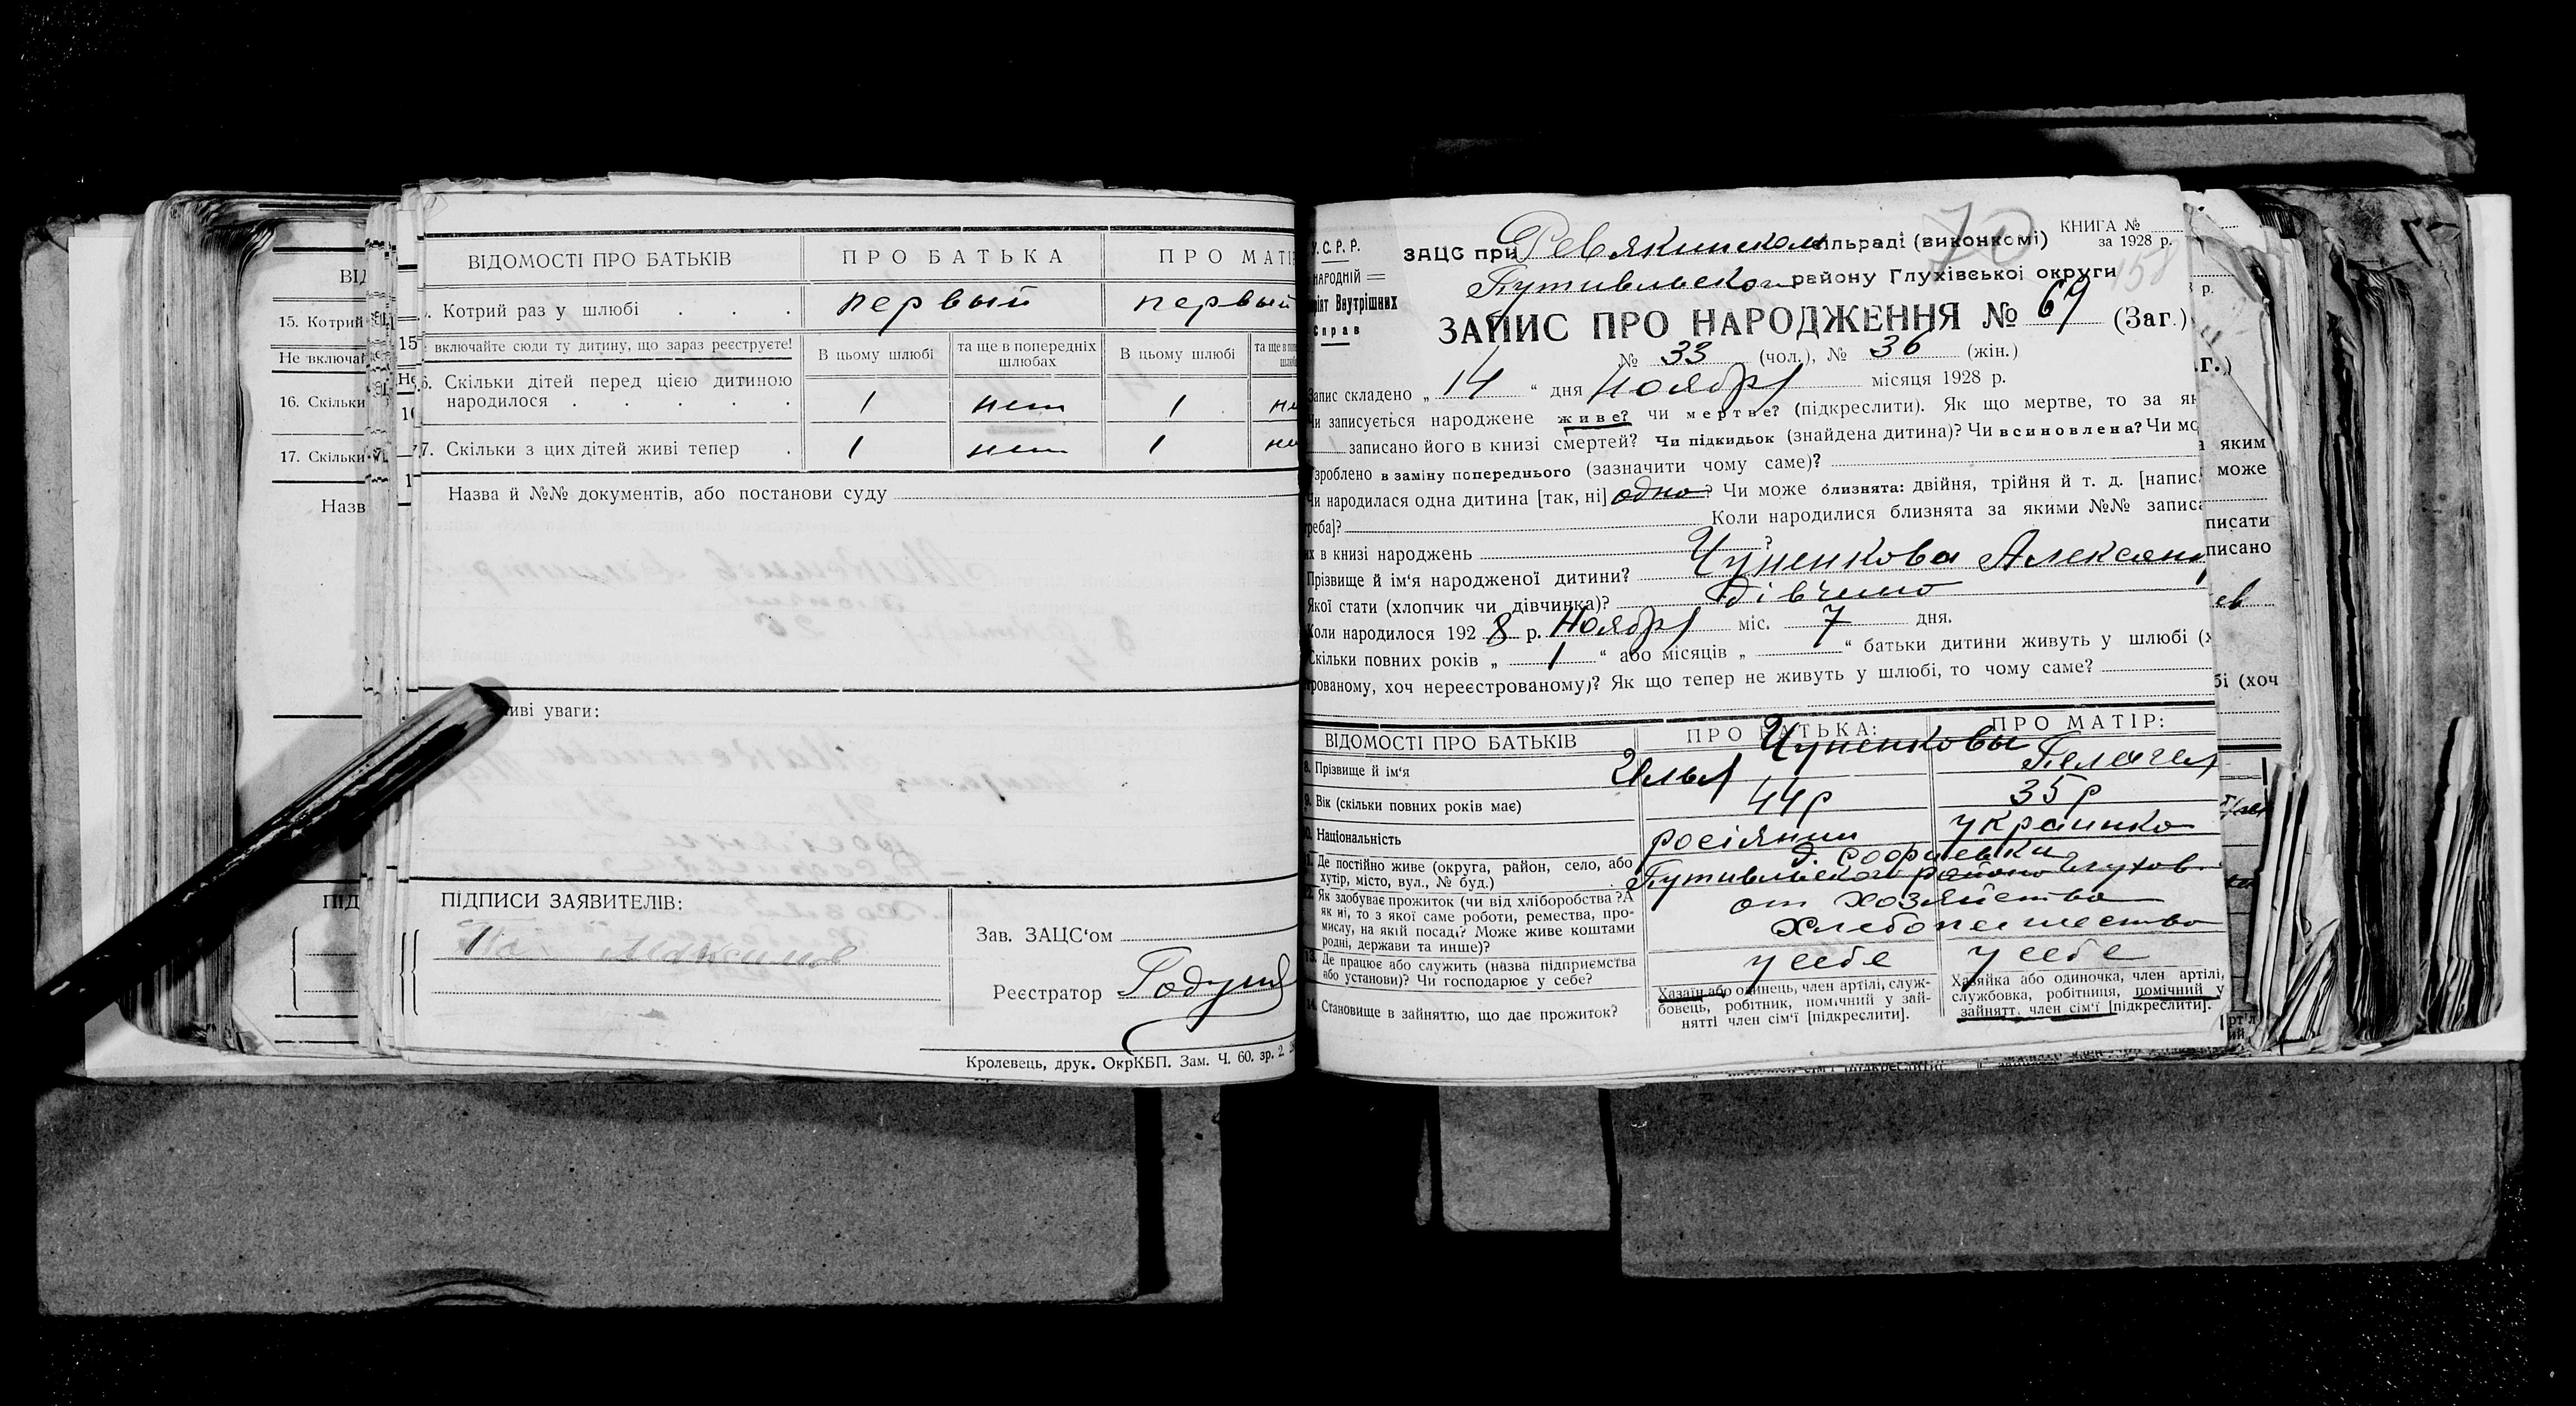 ВІДОМОСТІ ПРО БАТЬКІВ ПРО БАТЬКА ПРО МАТІ
Котрий раз у шлюбі . . . первый первый
включайте сюди ту дитину, що зараз реєструєте! В цьому шлюбі та ще в попередніх шлюбах В цьому шлюбі
6. Скільки дітей перед цією дитиною
народилося . . . . . 1 нет 1
7. Скільки з цих дітей живі тепер . 1 нет 1
Назва й №№ документів, або постанови суду
уваги:
ПІДПИСИ ЗАЯВИТЕЛІВ:
Зав. ЗАЦС‘ом
Реєстратор
Кролевець, друк. ОкрКБП. Зам. Ч. 60. зр. 2.
ВІД
15. Котрий
Не включаі
16. Скільки
17. Скільки
Назв
ПІД
У.С.Р.Р.
НАРОДНІЙ
Внутрішних
Справ
70
КНИГА №
за 1928 р.
158
ЗАЦС при Ревякинском сільраді (виконкомі)
Путивльского району Глухівської округи
ЗАПИС ПРО НАРОДЖЕННЯ № 69 (Заг.)
№ 33 (чол.), № 36 (жін.)
Запис складено „ 14 “ дня ноября місяця 1928 р.
Чи записується народжене живе? чи мертве? (підкреслити). Як що мертве, то за як
записано його в книзі смертей? Чи підкидьок (знайдена дитина)? Чи всиновлена? Чи мо
зроблено в заміну попереднього (зазначити чому саме)?
Чи народилася одна дитина [так, ні] одно? Чи може близнята: двійня, трійня й т. д. [напис
треба]? Коли народилися близнята за якими №№ записа
їх в книзі народжень ?
Прізвище й ім‘я народженої дитини? Чупенкова Алексан
Якої стати (хлопчик чи дівчинка)? дівчино
Коли народилося 1928 р. Ноября міс. 7 дня.
Скільки повних років „ 1 “ або місяців „ “ батьки дитини живуть у шлюбі (х
рованому, хоч нереєстрованому)? Як що тепер не живуть у шлюбі, то чому саме?
ВІДОМОСТІ ПРО БАТЬКІВ ПРО БАТЬКА: ПРО МАТІР:
Чупенковы
8. Прізвище й ім‘я Илья Пелагея
9. Вік (скільки повних років має) 44р 35р
10. Національність росіянин украинко
11. Де постійно живе (округа, район, село, або
хутір, місто, вул., № буд.) д. Софиевки
Путивльского района Глухов.
12. Як здобуває прожиток (чи від хліборобства? А
як ні, то з якої саме роботи, ремества, про-
мислу, на якій посаді? Може живе коштами
родні, держави та инше)? от хозяйства
Хлебопашество
13. Де працює або служить (назва підприємства
або установи)? Чи господарює у себе? у себе у себе
14. Становище в зайняттю, що дає прожиток?
Хазяїн або одинець, член артілі, служ-
бовець, робітник, помічний у зай-
нятті член сім‘ї [підкреслити].
Хазяйка або одиночка, член артілі,
службовка, робітниця, помічний у
зайнятт. член сім‘ї [підкреслити].
яким
може
писати
писано
бі (хоч